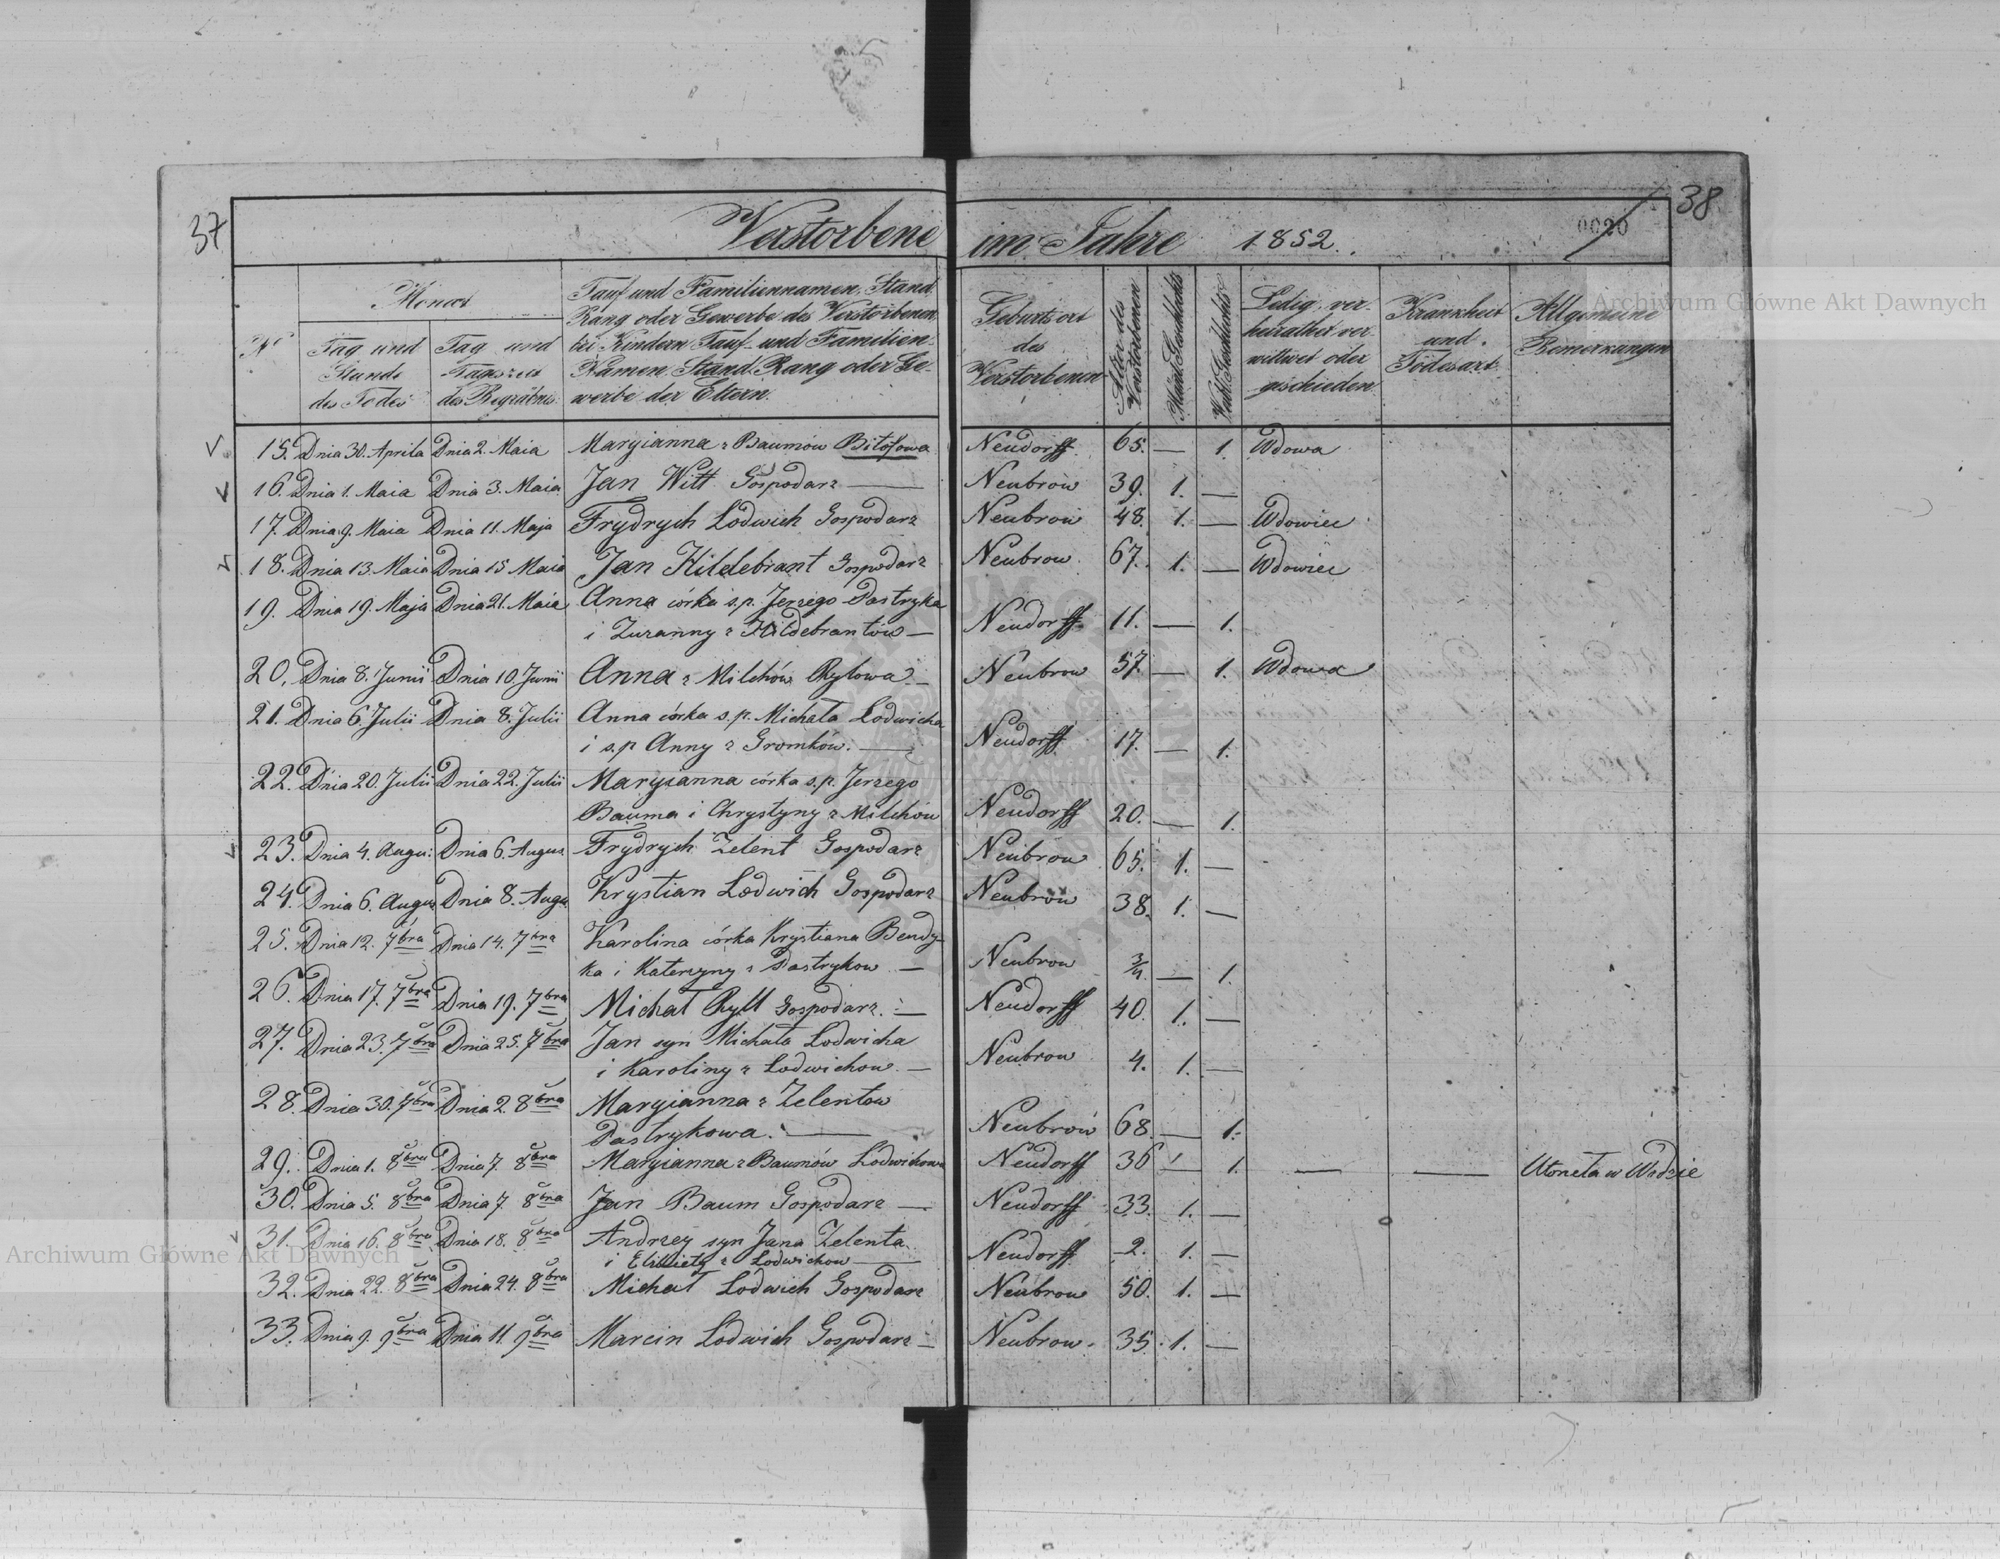 37
38
0020
Verstorbene im Jahre 1852.
No
Monat
Tag und
Stunde
des Todes
Tag und
Tageszeit
des Begräbnis
Tauf und Familiennamen, Stand,
Rang oder Gewerbe des Verstorbenen
bei Kindern Tauf- und Familien-
Namen, Stand, Rang oder Ge-
werbe der Eltern.
Geburtsort
des
Verstorbenen
Alter des
Verstorbenen
Mänl. Geschlechts
Weibl. Geschlechts
Ledig, ver-
heirathet ver-
wittwet oder
geschieden
Krankheit
und
Todesart
Allgemeine
Bemerkungen
15. Dnia 30. Aprila Dnia 2. Maia Maryianna z Baumów Bitofowa Neudorff 65. — 1. Wdowa
16. Dnia 1. Maia Dnia 3. Maia Jan Witt Gospodarz — Neubrow 39. 1. —
17. Dnia 9. Maia Dnia 11. Maja Frydrych Lodwich Gospodarz Neubrow 48. 1. — Wdowiec
18. Dnia 13. Maia Dnia 15 Maia Jan Hildebrant Gospodarz Neubrow 67. 1. — Wdowiec
19. Dnia 19. Maja Dnia 21. Maia Anna córka s.p. Jerzego Pastryka
i Zuzanny z Hildebrantów — Neudorff 11. — 1.
20. Dnia 8. Junii Dnia 10. Junii Anna z Milchów Rylowa. — Neubrow 57. — 1. Wdowa
21. Dnia 6. Julii Dnia 8. Julii Anna córka s.p. Michała Lodwicha
i s.p Anny z Gromków. — Neudorff 17. — 1.
22. Dnia 20. Julii Dnia 22. Julii Maryianna córka s.p. Jerzego
Bauma i Chrystyny z Milchów Neudorff 20. — 1.
23. Dnia 4. Augu: Dnia 6. Augus Frydrych Zelent Gospodarz Neubrow 65. 1. —
24. Dnia 6. Augus Dnia 8. Augu Krystian Lodwich Gospodarz Neubrow 38. 1. —
25. Dnia 12. 7bra Dnia 14. 7bra Karolina córka Krystiana Bendy-
ka i Katerzyny z Pastrykow — Neubrow 3/4 — 1.
26. Dnia 17. 7bra Dnia 19. 7bra Michał Ryll Gospodarz. — Neudorff 40. 1. —
27. Dnia 23. 7bra Dnia 25. 7bra Jan syn Michała Lodwicha
i Karoliny z Lodwichow. — Neubrow 4. 1. —
28. Dnia 30. 7bra Dnia 2. 8bra Maryianna z Zelentow
Pastrykowa. — Neubrow 68. — 1.
29. Dnia 1. 8bra Dnia 7. 8bra Maryianna z Baumów Lodwichowa Neudorff 36 — 1. — — Utoneła w Wodzie
30. Dnia 5. 8bra Dnia 7. 8bra Jan Baum Gospodarz — Neudorff 33. 1. —
31. Dnia 16. 8bra Dnia 18. 8bra Andrzey syn Jana Zelenta
i Elżbiety z Lodwichow — Neudorff 2. 1. —
32. Dnia 22. 8bra Dnia 24. 8bra Michał Lodwich Gospodarz Neubrow 50. 1. —
33. Dnia 9. 9bra Dnia 11. 9bra Marcin Lodwich Gospodarz — Neubrow. 35. 1. —
Archiwum Główne Akt Dawnych
Archiwum Główne Akt Dawnych